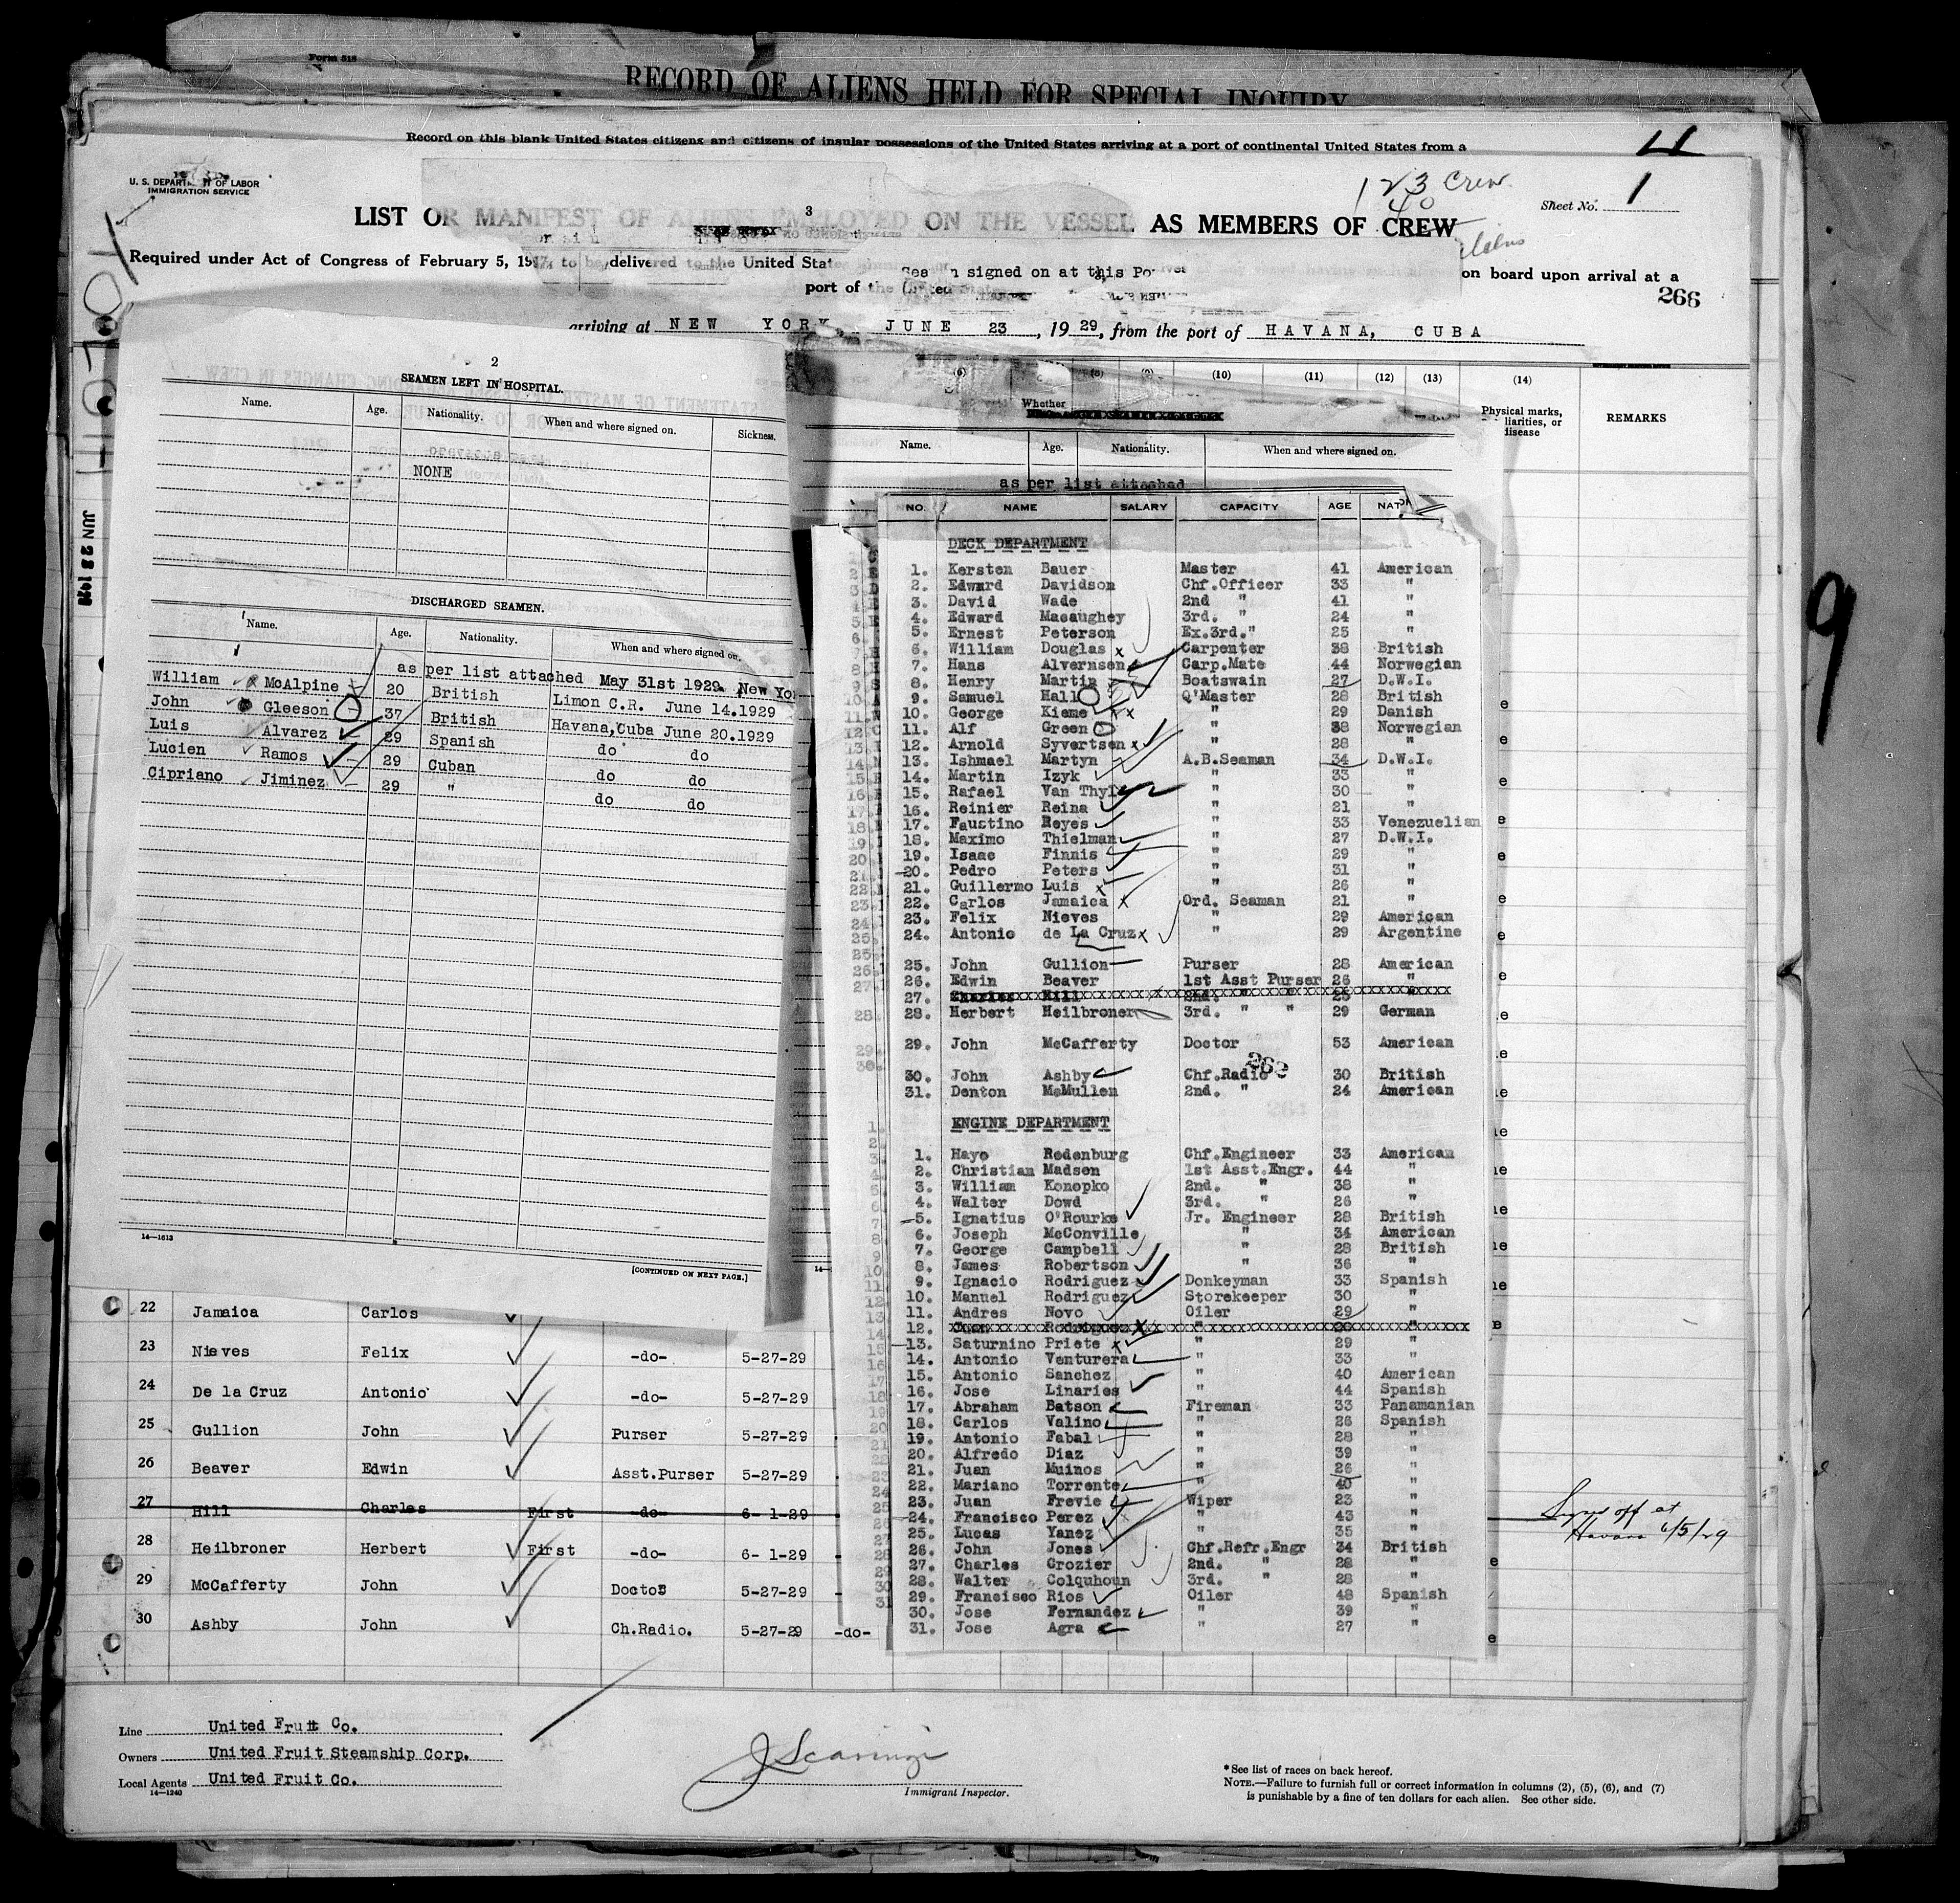 Form 518
RECORD OF ALIENS HELD FOR SPECIAL INQUIRY
Record on this blank United States citizens and citizens of insular possessions of the United States arriving at a port of continental United States from a
U. S. DEPARTMENT OF LABOR
IMMIGRATION SERVICE
123 Crew
40
Sheet No. 1
3
LIST OR MANIFEST OF ALIENS EMPLOYED ON THE VESSEL AS MEMBERS OF CREW
Required under Act of Congress of February 5, 1917, to be delivered to the United Stat
signed on at this Po
on board upon arrival at a
port of the United States
266
arriving at NEW YORK, JUNE 23, 1929, from the port of HAVANA, CUBA
JUN 23 1929
9
2
SEAMEN LEFT IN HOSPITAL.
Name. Age. Nationality. When and where signed on. Sickness.
NONE
DISCHARGED SEAMEN.
Name. Age. Nationality. When and where signed on.
as per list attached May 31st 1929 New Yo
William McAlpine 20 British Limon C.R. June 14.1929
John Gleeson 37 British Havana,Cuba June 20.1929
Luis Alvarez 29 Spanish do do
Lucien Ramos 29 Cuban do do
Cipriano Jiminez 29 " do do
14—1613
[CONTINUED ON NEXT PAGE.]
(10) (11) (12) (13) (14)
Whether
Physical marks,
liarities, or
disease
REMARKS
Name. Age. Nationality. When and where signed on.
as per list attached
NO. NAME SALARY CAPACITY AGE NAT
DECK DEPARTMENT
1. Kersten Bauer Master 41 American
2. Edward Davidson Chf.Officer 33 "
3. David Wade 2nd " 41 "
4. Edward Macaughey 3rd. " 24 "
5. Ernest Peterson Ex.3rd." 25 "
6. William Douglas Carpenter 38 British
7. Hans Alvernsen Carp.Mate 44 Norwegian
8. Henry Martin Boatswain 27 D.W.I.
9. Samuel Hall Q'Master 28 British
10. George Kieme " 29 Danish
11. Alf Green " 38 Norwegian
12. Arnold Syvertsen " 28 "
13. Ishmael Martyn A.B.Seaman 34 D.W.I.
14. Martin Izyk " 33 "
15. Rafael Van Thyl " 30 "
16. Reinier Reina " 21 "
17. Faustino Reyes " 33 Venezuelian
18. Maximo Thielman " 27 D.W.I.
19. Isaac Finnis " 29 "
20. Pedro Peters " 31 "
21. Guillermo Luis " 26 "
22. Carlos Jamaica Ord. Seaman 21 "
23. Felix Nieves " 29 American
24. Antonio de La Cruz " 29 Argentine
25. John Gullion Purser 28 American
26. Edwin Beaver 1st Asst Purser 26 "
27. Charles Hill 2nd. " " 25 "
28. Herbert Heilbroner 3rd. " " 29 German
29. John McCafferty Doctor 53 American
262
30. John Ashby Chf.Radio 30 British
31. Denton McMullen 2nd. " 24 American
ENGINE DEPARTMENT
1. Hayo Redenburg Chf.Engineer 33 American
2. Christian Madsen 1st Asst.Engr. 44 "
3. William Konopko 2nd. " 38 "
4. Walter Dowd 3rd. " 26 "
5. Ignatius O'Rourke Jr. Engineer 28 British
6. Joseph McConville " 34 American
7. George Campbell " 28 British
8. James Robertson " 36 "
9. Ignacio Rodriguez Donkeyman 33 Spanish
10. Manuel Rodriguez Storekeeper 30 "
11. Andres Novo Oiler 29 "
12. Rodriguez " "
13. Saturnino Priete " 29 "
14. Antonio Venturera " 33 "
15. Antonio Sanchez " 40 American
16. Jose Linaries " 44 Spanish
17. Abraham Batson Fireman 33 Panamanian
18. Carlos Valino " 26 Spanish
19. Antonio Fabal " 28 "
20. Alfredo Diaz " 39 "
21. Juan Muinos " 26 "
22. Mariano Torrente " 40 "
23. Juan Frevie Wiper 23 "
24. Francisco Perez " 43 "
25. Lucas Yanez " 35 "
26. John Jones Chf.Refr.Engr 34 British
27. Charles Crozier 2nd. " 28 "
28. Walter Colquhoun 3rd. " 28 "
29. Francisco Rios Oiler 48 Spanish
30. Jose Fernandez " 39 "
31. Jose Agra " 27 "
22 Jamaica Carlos
23 Nieves Felix -do- 5-27-29
24 De la Cruz Antonio -do- 5-27-29
25 Gullion John Purser 5-27-29
26 Beaver Edwin Asst.Purser 5-27-29
27 Hill Charles First -do- 6- 1-29
Signed off at
Havana 6/5/29
28 Heilbroner Herbert First -do- 6- 1-29
29 McCafferty John Doctor 5-27-29
30 Ashby John Ch.Radio. 5-27-29 -do-
Line United Fruit Co.
Owners United Fruit Steamship Corp.
Local Agents United Fruit Co.
14—1240
Immigrant Inspector.
* See list of races on back hereof.
NOTE.—Failure to furnish full or correct information in columns (2), (5), (6), and (7)
is punishable by a fine of ten dollars for each alien. See other side.